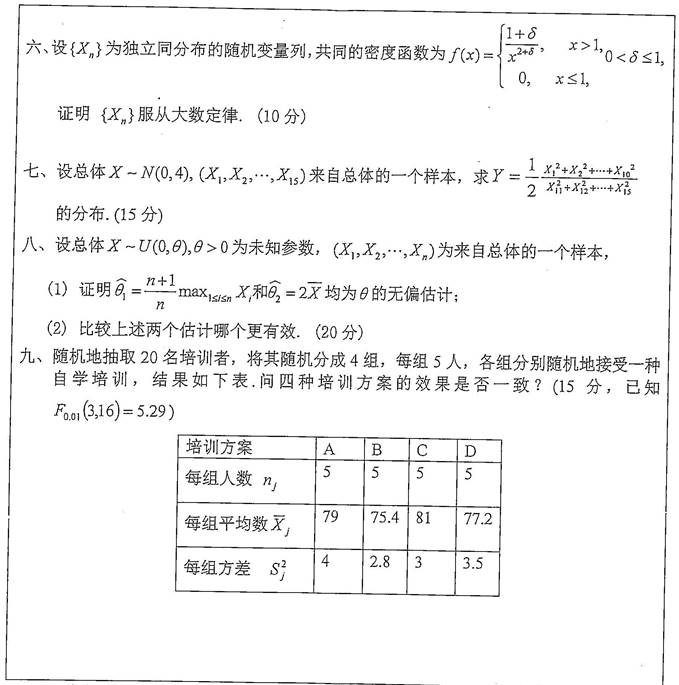 六、设{Xₙ}为独立同分布的随机变量列,共同的密度函数为 f(x)={(1+δ)/x^(2+δ), x>1, 0, x≤1, 0<δ≤1,
证明 {Xₙ}服从大数定律. (10分)
七、设总体 X~N(0,4), (X₁,X₂,⋯,X₁₅)来自总体的一个样本，求Y = 1/2 (X₁²+X₂²+⋯+X₁₀²)/(X₁₁²+X₁₂²+⋯+X₁₅²)
的分布. (15 分)
八、设总体 X~U(0,θ),θ>0为未知参数，(X₁,X₂,⋯,Xₙ)为来自总体的一个样本，
(1) 证明θ̂₁=(n+1)/n max₁≤i≤n Xᵢ和θ̂₂=2X̄均为θ的无偏估计；
(2) 比较上述两个估计哪个更有效. (20分)
九、随机地抽取20名培训者，将其随机分成4组，每组5人，各组分别随机地接受一种
自学培训，结果如下表.问四种培训方案的效果是否一致？(15 分，已知
F₀.₀₁(3,16)=5.29)
培训方案 A B C D
每组人数 nⱼ 5 5 5 5
每组平均数X̄ⱼ 79 75.4 81 77.2
每组方差 Sⱼ² 4 2.8 3 3.5